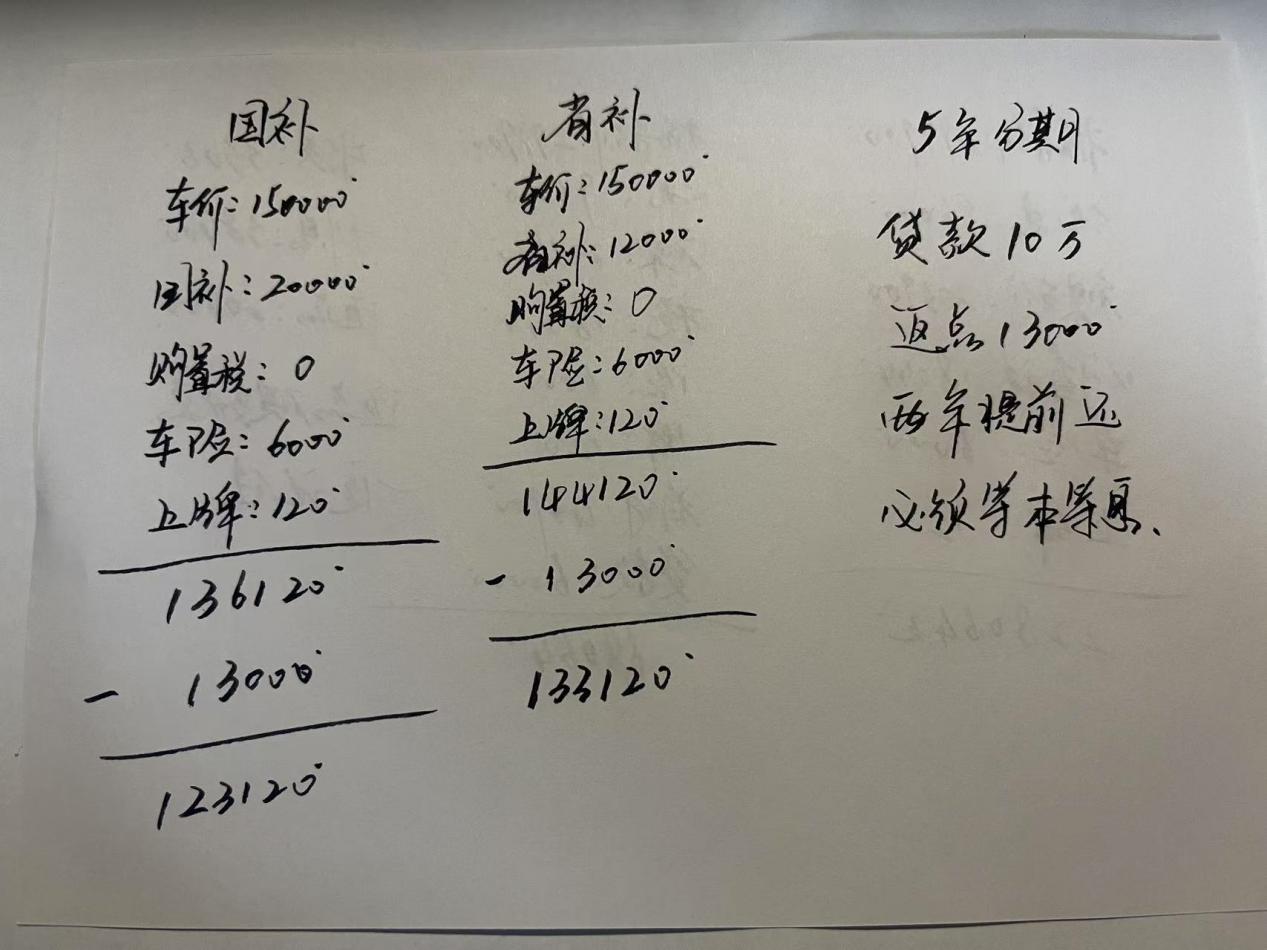 国补
车价：150000
国补：20000
购置税：0
车险：6000
上牌：120
136120
- 13000
123120
省补
车价：150000
省补：12000
购置税：0
车险：6000
上牌：120
144120
- 13000
133120
5年分期
贷款10万
返点13000
两年提前还
必须等本等息、